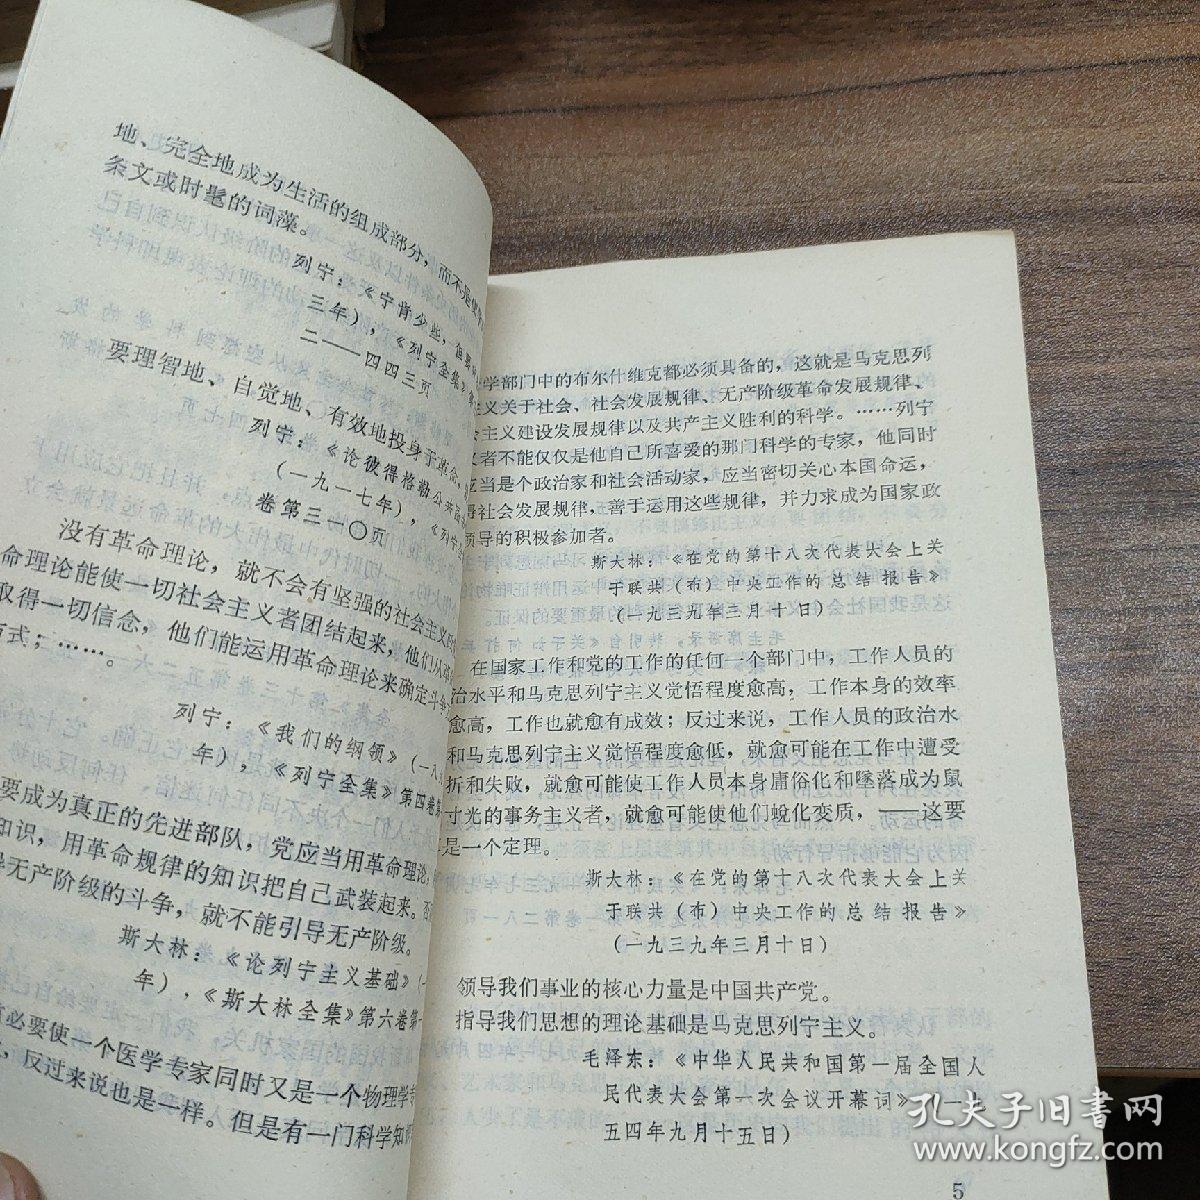 地、完全地成为生活的组成部分，而不是使
条文或时髦的词藻。
列宁：《宁肯少些，但要
三年），《列宁全集》
二——四四三页
要理智地、自觉地、有效地投身于革命，
列宁：《论彼得格勒公共
（一九一七年），《列
卷第三一〇页
没有革命理论，就不会有坚强的社会主义
命理论能使一切社会主义者团结起来，他们从革
取得一切信念，他们能运用革命理论来确定斗争
方式；……。
列宁：《我们的纲领》（一八
年），《列宁全集》第四卷第
要成为真正的先进部队，党应当用革命理论，
知识，用革命规律的知识把自己武装起来。否
导无产阶级的斗争，就不能引导无产阶级。
斯大林：《论列宁主义基础》（一
年），《斯大林全集》第六卷第一
必要使一个医学专家同时又是一个物理学专
，反过来说也是一样。但是有一门科学知识
学部门中的布尔什维克都必须具备的，这就是马克思列
主义关于社会、社会发展规律、无产阶级革命发展规律、
会主义建设发展规律以及共产主义胜利的科学。……列宁
义者不能仅仅是他自己所喜爱的那门科学的专家，他同时
应当是个政治家和社会活动家，应当密切关心本国命运，
社会发展规律，善于运用这些规律，并力求成为国家政
领导的积极参加者。
斯大林：《在党的第十八次代表大会上关
于联共（布）中央工作的总结报告》
（一九三九年三月十日）
在国家工作和党的工作的任何一个部门中，工作人员的
治水平和马克思列宁主义觉悟程度愈高，工作本身的效率
愈高，工作也就愈有成效；反过来说，工作人员的政治水
和马克思列宁主义觉悟程度愈低，就愈可能在工作中遭受
折和失败，就愈可能使工作人员本身庸俗化和墜落成为鼠
寸光的事务主义者，就愈可能使他们蜕化变质，——这要
是一个定理。
斯大林：《在党的第十八次代表大会上关
于联共（布）中央工作的总结报告》
（一九三九年三月十日）
领导我们事业的核心力量是中国共产党。
指导我们思想的理论基础是马克思列宁主义。
毛泽东：《中华人民共和国第一届全国人
民代表大会第一次会议开幕词》（一九
五四年九月十五日）
5
孔夫子旧书网
www.kongfz.com